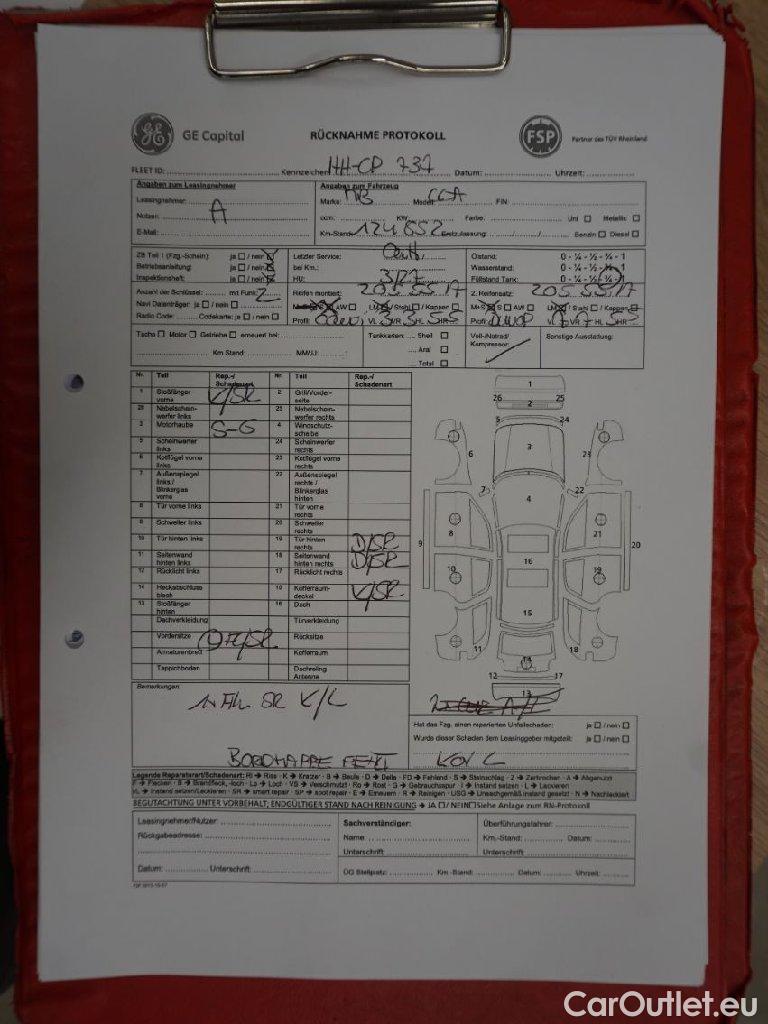 GE Capital RÜCKNAHME PROTOKOLL FSP Partner des TÜV Rheinland
FLEET ID: Kennzeichen: HH-CP 737 Datum: Uhrzeit:
Angaben zum Leasingnehmer
Leasingnehmer:
Notizen: A
E-Mail:
Angaben zum Fahrzeug
Marke: MB Modell: CLA FIN:
ccm: KW: Farbe: Uni Metallic
Km-Stand: 124652 Erstzulassung: Benzin Diesel
ZB Teil I (Fzg.-Schein): ja / nein
Betriebsanleitung: ja / nein
Inspektionsheft: ja / nein
Letzter Service:
bei Km.:
HU:
Ölstand: 0 - ¼ - ½ - ¾ - 1
Wasserstand: 0 - ¼ - ½ - ¾ - 1
Füllstand Tank: 0 - ¼ - ½ - ¾ - 1
Anzahl der Schlüssel: mit Funk: 2
Navi Datenträger: ja / nein
Radio Code: Codekarte: ja / nein
Reifen montiert: 205 55 17
LM / Stahl / Kappen
Profil: VL VR HL HR
2. Reifensatz: 205 55 17
LM / Stahl / Kappen
Profil: VL VR HL HR
Tacho Motor Getriebe erneuert bei:
Km Stand MM/JJ
Tankkarten: Shell
Aral
Total
Voll-/Notrad/
Kompressor:
Sonstige Ausstattung:
Nr. Teil Rep.-/ Schadenart Nr. Teil Rep.-/ Schadenart
1 Stoßfänger vorne K/SR 2 Grill/Vorderseite
Nebelscheinwerfer links Nebelscheinwerfer rechts
3 Motorhaube S-G 4 Windschutzscheibe
5 Scheinwerfer links 24 Scheinwerfer rechts
6 Kotflügel vorne links 23 Kotflügel vorne rechts
7 Außenspiegel links / Blinkerglas vorne 22 Außenspiegel rechts / Blinkerglas hinten
8 Tür vorne links 21 Tür vorne rechts
9 Schweller links 20 Schweller rechts
10 Tür hinten links 19 Tür hinten rechts D/SR
11 Seitenwand hinten links 18 Seitenwand hinten rechts D/SR
12 Rücklicht links 17 Rücklicht rechts
14 Heckabschlussblech Kofferraumdeckel K/SR
13 Stoßfänger hinten 16 Dach
Dachverkleidung Türverkleidung
Vordersitze Rücksitze
Armaturenbrett Kofferraum
Teppichboden Dachreling Antenne
1
26 25
2
5 24
3
6 23
7 22
4
8 21
9 20
16
10 19
15
11 18
14
12 17
13
Bemerkungen
K/L
BORDMAPPE FEHLT
Hat das Fzg. einen reparierten Unfallschaden: ja / nein
Wurde dieser Schaden dem Leasinggeber mitgeteilt: ja / nein
Legende Reparaturart/Schadenart: RI → Riss - K → Kratzer - B → Beule - D → Delle - FD → Fehlend - S → Steinschlag - Z → Zerbrochen - A → Abgenutzt
F → Flecken - B → Brandfleck, -loch - Lo → Loch - VS → Verschmutzt - Ro → Rost - G → Gebrauchsspur - I → Instand setzen - L → Lackieren
IL → Instand setzen/Lackieren - SR → smart repair - SP → spot repair - E → Erneuern - R → Reinigen - USG → Unsachgemäß instand gesetzt - N → Nachlackiert
BEGUTACHTUNG UNTER VORBEHALT; ENDGÜLTIGER STAND NACH REINIGUNG → JA / NEIN Siehe Anlage zum RN-Protokoll
Leasingnehmer/Nutzer:
Rückgabeadresse:
Datum: Unterschrift:
Sachverständiger:
Name:
Unterschrift
Überführungsfahrer:
Km.-Stand: Datum:
Unterschrift:
ÜG Stellplatz: Km-Stand: Datum: Uhrzeit:
CarOutlet.eu